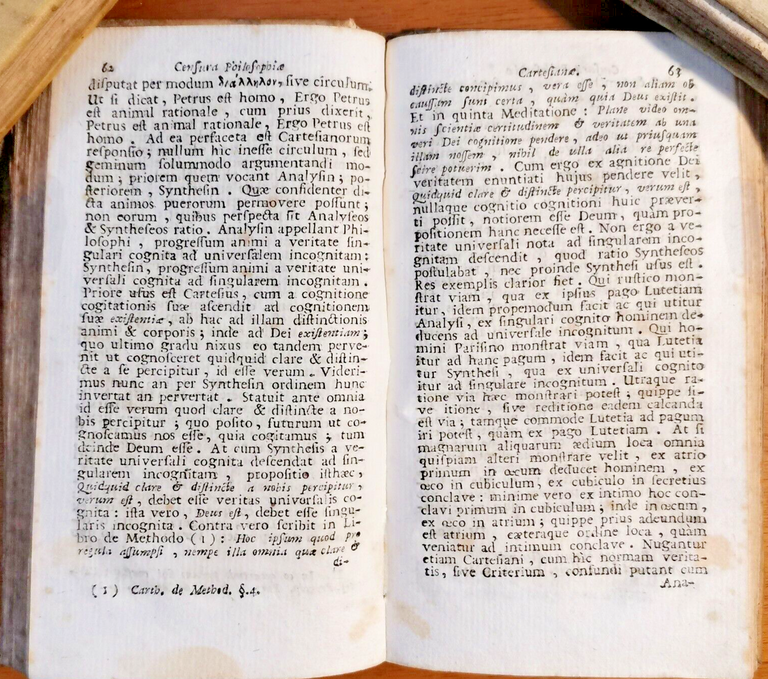 62 Censura Philosophiæ
disputat per modum διάλληλον, sive circulum.
Ut si dicat, Petrus est homo, Ergo Petrus
est animal rationale, cum prius dixerit,
Petrus est animal rationale, Ergo Petrus est
homo. Ad ea perfaceta est Cartesianorum
responsio; nullum hic inesse circulum, sed
geminum solummodo argumentandi mo-
dum; priorem quem vocant Analysin; po-
steriorem, Synthesin. Quæ confidenter di-
cta animos puerorum permovere possunt;
non eorum, quibus perspecta sit Analyseos
& Syntheseos ratio. Analysin appellant Phi-
losophi, progressum animi a veritate sin-
gulari cognita ad universalem incognitam:
Synthesin, progressum animi a veritate uni-
versali cognita ad singularem incognitam.
Priore usus est Cartesius, cum a cognitione
cogitationis suæ ascendit ad cognitionem
suæ existentiæ, ab hac ad illam distinctionis
animi & corporis; inde ad Dei existentiam;
quo ultimo gradu nixus eo tandem perve-
nit ut cognosceret quidquid clare & distin-
cte a se percipitur, id esse verum. Videri-
mus nunc an per Synthesin ordinem hunc
invertat an pervertat. Statuit ante omnia
id esse verum quod clare & distincte a no-
bis percipitur; quo posito, futurum ut co-
gnoscamus nos esse, quia cogitamus; tum
deinde Deum esse. At cum Synthesis a ve-
ritate universali cognita descendat ad sin-
gularem incognitam, propositio isthæc,
Quidquid clare & distincte a nobis percipitur,
verum est, debet esse veritas universalis co-
gnita: ista vero, Deus est, debet esse singu-
laris incognita. Contra vero scribit in Li-
bro de Methodo (1): Hoc ipsum quod pro
regula assumpsi, nempe illa omnia quæ clare &
di-
(1) Carth. de Method. §.4.
Cartesianæ. 63
distincte concipimus, vera esse, non aliam ob
caussam sunt certa, quàm quia Deus existit.
Et in quinta Meditatione: Plane video om-
nis scientiæ certitudinem & veritatem ab una
veri Dei cognitione pendere, adeo ut priusquam
illam nossem, nihil de ulla alia re perfecte
scire potuerim. Cum ergo ex agnitione Dei
veritatem enuntiati hujus pendere velit,
Quidquid clare & distincte percipitur, verum est,
nullaque cognitio cognitioni huic præver-
ti possit, notiorem esse Deum, quàm pro-
positionem hanc necesse est. Non ergo a ve-
ritate universali nota ad singularem inco-
gnitam descendit, quod ratio Syntheseos
postulabat, nec proinde Synthesi usus est.
Res exemplis clarior fiet. Qui rustico mon-
strat viam, qua ex ipsius pago Lutetiam
itur, idem propemodum facit ac qui utitur
Analysi, ex singulari cognito hominem de-
ducens ad universale incognitum. Qui ho-
mini Parisino monstrat viam, qua Lutetia
itur ad hanc pagum, idem facit ac qui uti-
tur Synthesi, qua ex universali cognito
itur ad singulare incognitum. Utraque ra-
tione via hæc monstrari potest; quippe si-
ve itione, sive reditione eadem calcanda
est via; tamque commode Lutetia ad pagum
iri potest, quàm ex pago Lutetiam. At si
magnarum aliquarum ædium loca omnia
quispiam alteri monstrare velit, ex atrio
primum in œcum deducet hominem, ex
œco in cubiculum, ex cubiculo in secretius
conclave: minime vero ex intimo hoc con-
clavi primum in cubiculum; inde in œcum,
ex œco in atrium; quippe prius adeundum
est atrium, cæteraque ordine loca, quàm
veniatur ad intimum conclave. Nugantur
etiam Cartesiani, cum hic normam verita-
tis, sive Criterium, confundi putant cum
Ana-